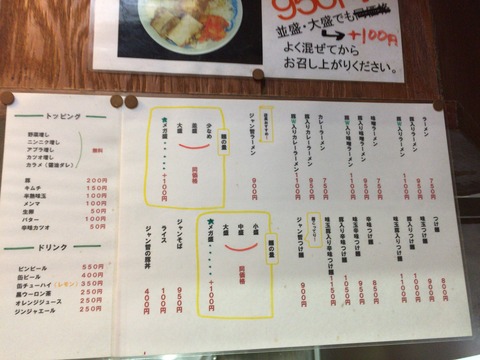 950円
並盛・大盛でも同価格
→+100円
よく混ぜてから
お召し上がりください。
トッピング
野菜増し
ニンニク増し
アブラ増し
カツオ増し
カラメ（醤油ダレ）
無料
豚 200円
キムチ 150円
半熟味玉 100円
メンマ 100円
生卵 50円
バター 100円
辛味カツオ 50円
ドリンク
ビンビール 550円
缶ビール 400円
缶チューハイ（レモン） 350円
黒ウーロン茶 250円
オレンジジュース 250円
ジンジャエール 250円
ラーメン 750円
豚入りラーメン 900円
豚W入りラーメン 1100円
味噌ラーメン 750円
豚入り味噌ラーメン 900円
豚W入り味噌ラーメン 1100円
カレーラーメン 750円
豚入りカレーラーメン 900円
豚W入りカレーラーメン 1100円
店長おすすめ
ジャン哲ラーメン 900円
麺の量
少なめ
並盛
大盛
同価格
★メガ盛・・・・・+100円
つけ麺 800円
味玉つけ麺 900円
豚入りつけ麺 1000円
味玉豚入りつけ麺 1100円
辛味つけ麺 850円
味玉辛味つけ麺 950円
豚入り辛味つけ麺 1050円
味玉豚入り辛味つけ麺 1150円
ジャン哲つけ麺 900円
麺の量
小盛
中盛
大盛
同価格
★メガ盛・・・・・+100円
ジャンそば 950円
ライス 100円
ジャン哲の豚丼 400円